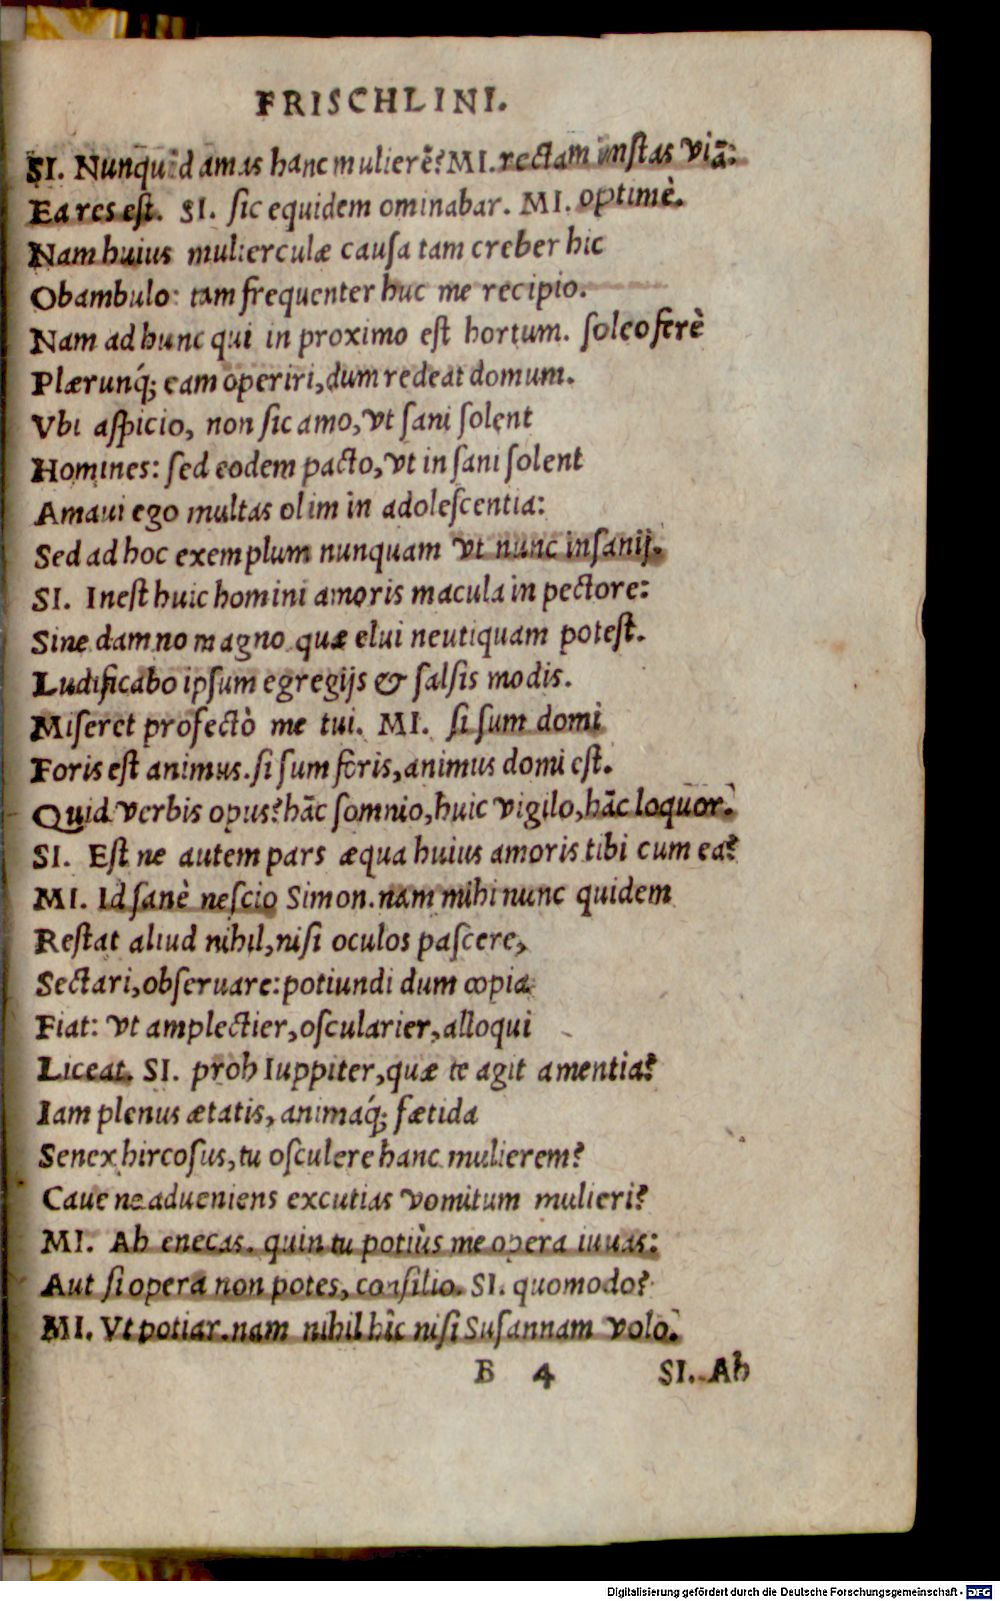 FRISCHLINI.
SI. Nunquid amas hanc mulierẽ? MI. rectam instas viã:
Ea res est. SI. sic equidem ominabar. MI. optimè.
Nam huius mulierculæ causa tam creber hic
Obambulo: tam frequenter huc me recipio.
Nam ad hunc qui in proximo est hortum. soleo ferè
Plærunq́; eam operiri, dum redeat domum.
Vbi aspicio, non sic amo, vt sani solent
Homines: sed eodem pacto, vt insani solent
Amaui ego multas olim in adolescentia:
Sed ad hoc exemplum nunquam vt nunc insanij.
SI. Inest huic homini amoris macula in pectore:
Sine damno magno quæ elui neutiquam potest.
Ludificabo ipsum egregijs & salsis modis.
Miseret profectò me tui. MI. si sum domi
Foris est animus. si sum foris, animus domi est.
Quid verbis opus? hãc somnio, huic vigilo, hãc loquor.
SI. Est ne autem pars æqua huius amoris tibi cum ea?
MI. Id sanè nescio Simon. nam mihi nunc quidem
Restat aliud nihil, nisi oculos pascere,
Sectari, obseruare: potiundi dum copia
Fiat: vt amplectier, oscularier, alloqui
Liceat. SI. proh Iuppiter, quæ te agit amentia?
Iam plenus ætatis, animaq́; fætida
Senex hircosus, tu osculere hanc mulierem?
Caue ne adueniens excutias vomitum mulieri?
MI. Ah enecas. quin tu potiùs me opera iuuas:
Aut si opera non potes, consilio. SI. quomodo?
MI. Vt potiar. nam nihil hîc nisi Susannam volo.
B 4 SI. Ah
Digitalisierung gefördert durch die Deutsche Forschungsgemeinschaft - DFG